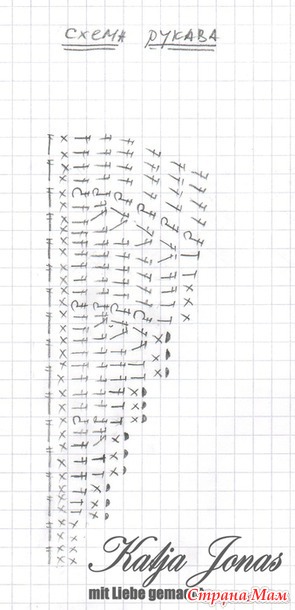 СХЕМА РУКАВА
Katja Jonas
mit Liebe gemacht
Страна Мам